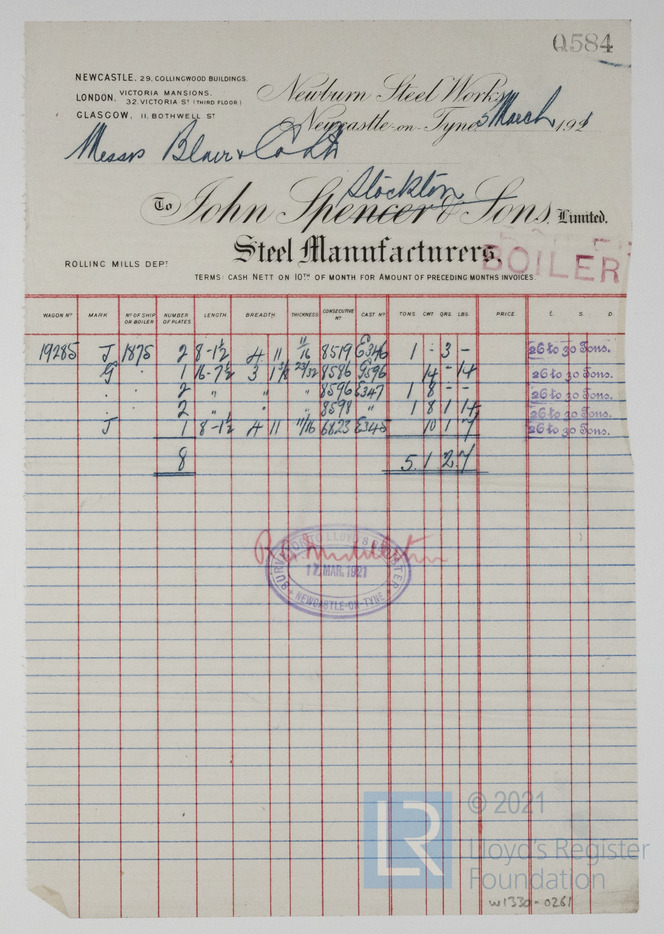 0584
NEWCASTLE, 29, COLLINGWOOD BUILDINGS.
LONDON, VICTORIA MANSIONS,
32, VICTORIA ST (THIRD FLOOR)
GLASGOW, 11, BOTHWELL ST
Newburn Steel Works
Newcastle-on-Tyne 5 March 1921
Messrs Blair & Co Ltd
Stockton
To John Spencer & Sons, Limited.
Steel Manufacturers,
BOILER
ROLLING MILLS DEPT
TERMS: CASH NETT ON 10TH OF MONTH FOR AMOUNT OF PRECEDING MONTHS INVOICES.
WAGON NO MARK NO OF SHIP OR BOILER NUMBER OF PLATES LENGTH BREADTH THICKNESS CONSECUTIVE NO CAST NO TONS. CWT QRS. LBS. PRICE £. S. D.
19285 J 1875 2 8-1½ 4 11 11/16 8519 E346 1 - 3 - 26 to 30 Tons.
G " 1 16-7½ 3 1 23/32 8586 14 - 14 26 to 30 Tons.
" " 2 " " " 8596 E347 1 8 - - 26 to 30 Tons.
" " 2 " " " 8598 " 1 8 1 14 26 to 30 Tons.
J 1 8-1½ 4 11 11/16 6823 E345 10 1 7 26 to 30 Tons.
8 5 1 2 7
SURVEYOR TO LLOYD'S REGISTER
17 MAR. 1921
NEWCASTLE-ON-TYNE
LR
© 2021
Lloyd's Register
Foundation
W1330-0261